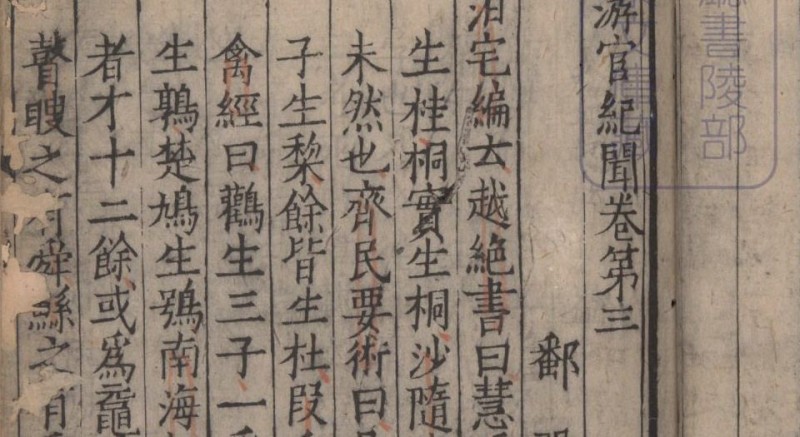 書陵部
游宦紀聞卷第三
鄱
泊宅編云越絶書曰慧
生桂桐實生桐沙隨
未然也齊民要術曰
子生棃餘皆生杜段
禽經曰鸛生三子一
生鶉楚鳩生鶚南海
者才十二餘或爲黿
瞽瞍之有舜鯀之有